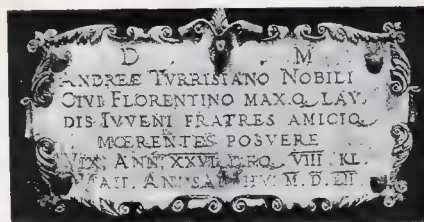 D M
ANDREÆ TVRRISIANO NOBILI
CIVI FLORENTINO MAX.Q. LAV.
DIS IVVENI FRATRES AMICIQ.
MŒRENTES POSVERE
VIX. ANN. XXVI. VIII. KL.
M. D.